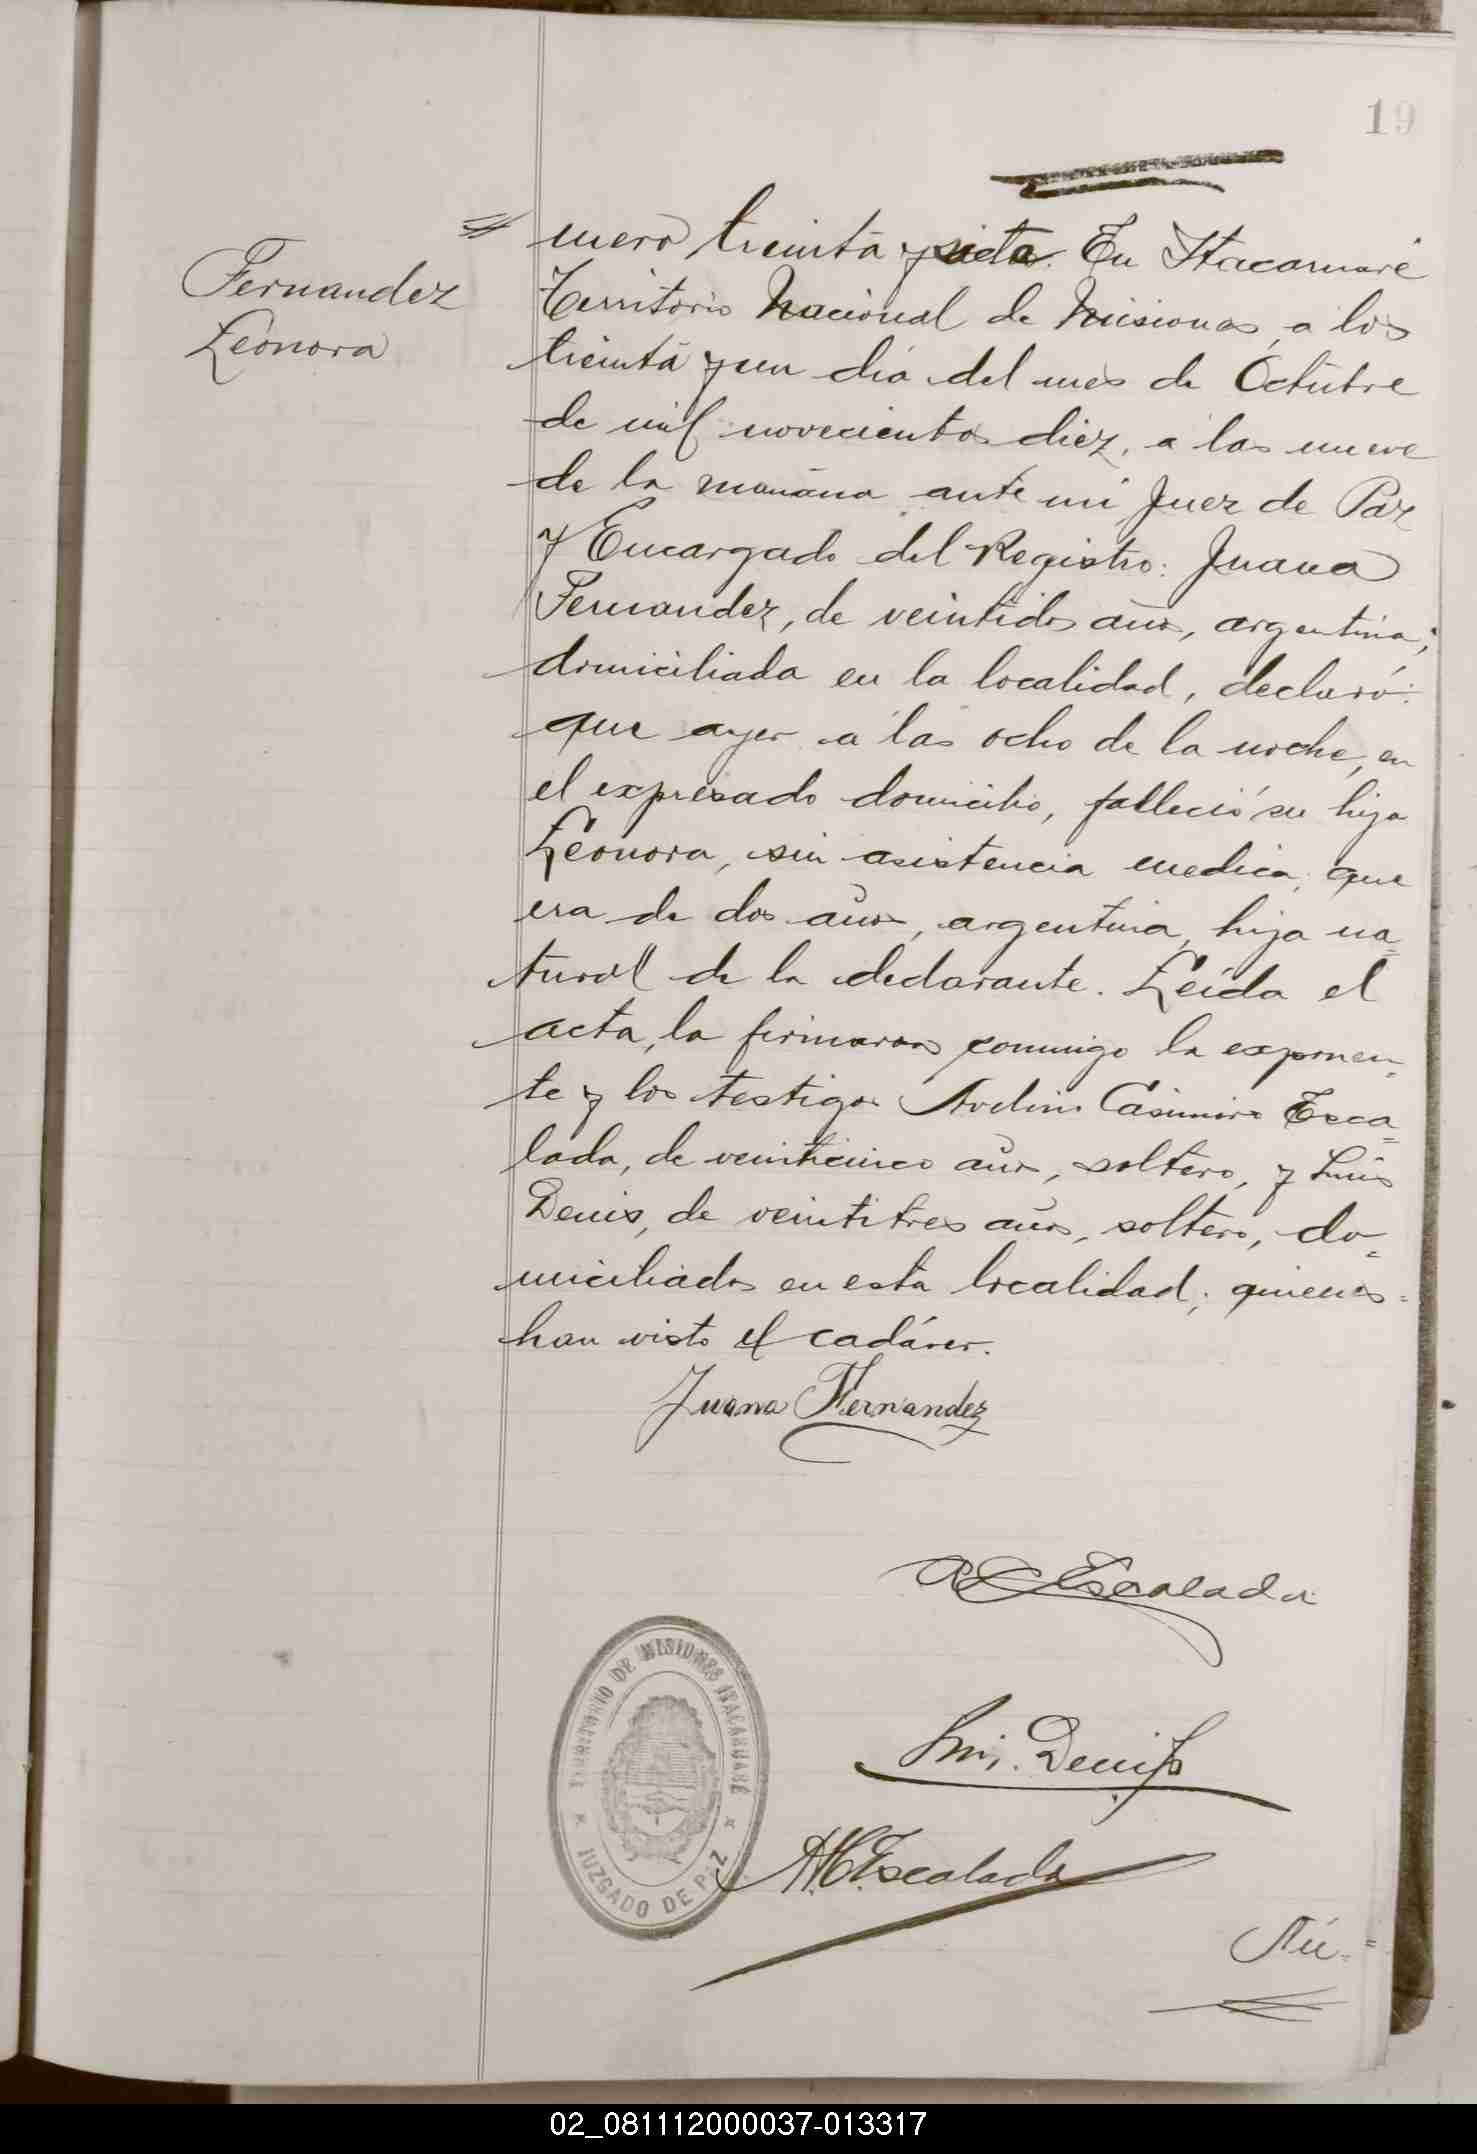 19
Fernandez
Leonora
mero treinta y siete. En Itacaruaré
Territorio Nacional de Misiones, a los
treinta y un dia del mes de Octubre
de mil novecientos diez, a las nueve
de la mañana ante mi Juez de Paz
y Encargado del Registro: Juana
Fernandez, de veintidos años, argentina,
domiciliada en la localidad, declaró:
que ayer a las ocho de la noche, en
el expresado domicilio, falleció su hija
Leonora, sin asistencia medica, que
era de dos años, argentina, hija na=
tural de la declarante. Leida el
acta, la firmaron conmigo la exponen=
te y los testigos Casimiro Esca=
lada, de veinticinco años, soltero, y Luis
Denis, de veintitres años, soltero, do=
miciliados en esta localidad; quienes
han visto el cadáver.
Juana Fernandez
A C Escalada
Luis Denis
TERRITORIO DE MISIONES ITACARUARÉ
JUZGADO DE PAZ
A.C. Escalada
Nú=
02_081112000037-013317